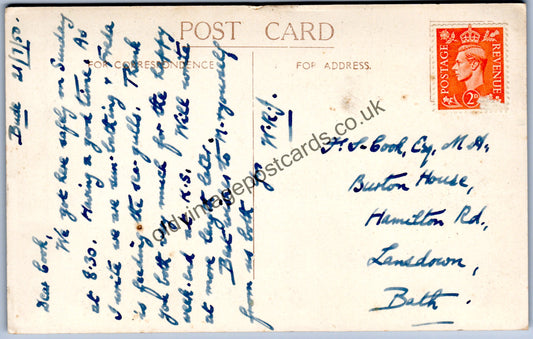 POST CARD
FOR CORRESPONDENCE
FOR ADDRESS.
POSTAGE
REVENUE
2D
Bude 21/7/50.
Dear Cook,
We got here safely on Sunday
at 8.30. Having a good time. As
I write we are sun-bathing & Freda
is feeding the sea-gulls. Thank
you both very much for the happy
week-end at K.S. Will write
at more length later.
Best wishes to N. & yourself
from us both
W.R.J.
F. S. Cook, Esq, M.A.
Burton House,
Hamilton Rd,
Lansdown,
Bath.
oldvintagepostcards.co.uk